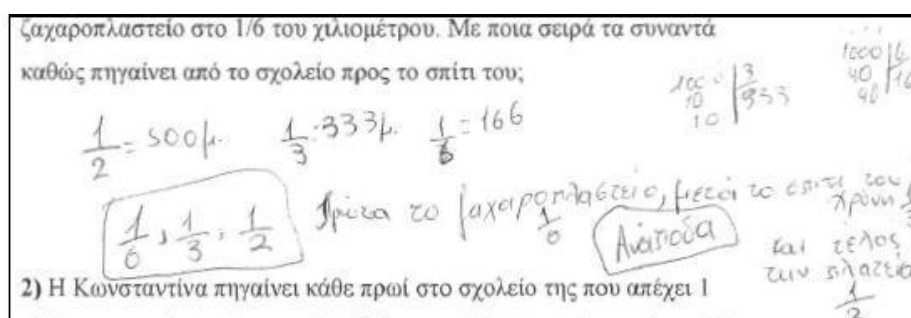 ζαχαροπλαστείο στο 1/6 του χιλιομέτρου. Με ποια σειρά τα συναντά
καθώς πηγαίνει από το σχολείο προς το σπίτι του;
1000 | 3
10 | 333
10
1000 | 6
40 | 16
40
1/2 = 500μ. 1/3 = 333μ. 1/6 = 166
1/6, 1/3, 1/2
Πρώτα το ζαχαροπλαστείο, μετά το σπίτι του
1/6
Ανάποδα
και τέλος
την πλατεία
1/2
2) Η Κωνσταντίνα πηγαίνει κάθε πρωί στο σχολείο της που απέχει 1